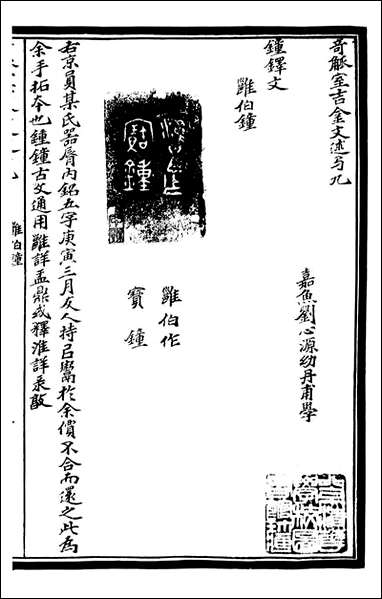 奇觚室吉金文述弓九
嘉魚劉心源幼丹甫學
鐘鐸文
雝伯鐘
雝伯作
寶鐘
右京員某氏器脣内銘五字庚寅三月友人持㠯鬻於余價不合而還之此為
余手拓本也鍾鐘古文通用雝詳盂鼎或釋淮詳彔𣪘
雝白鐘